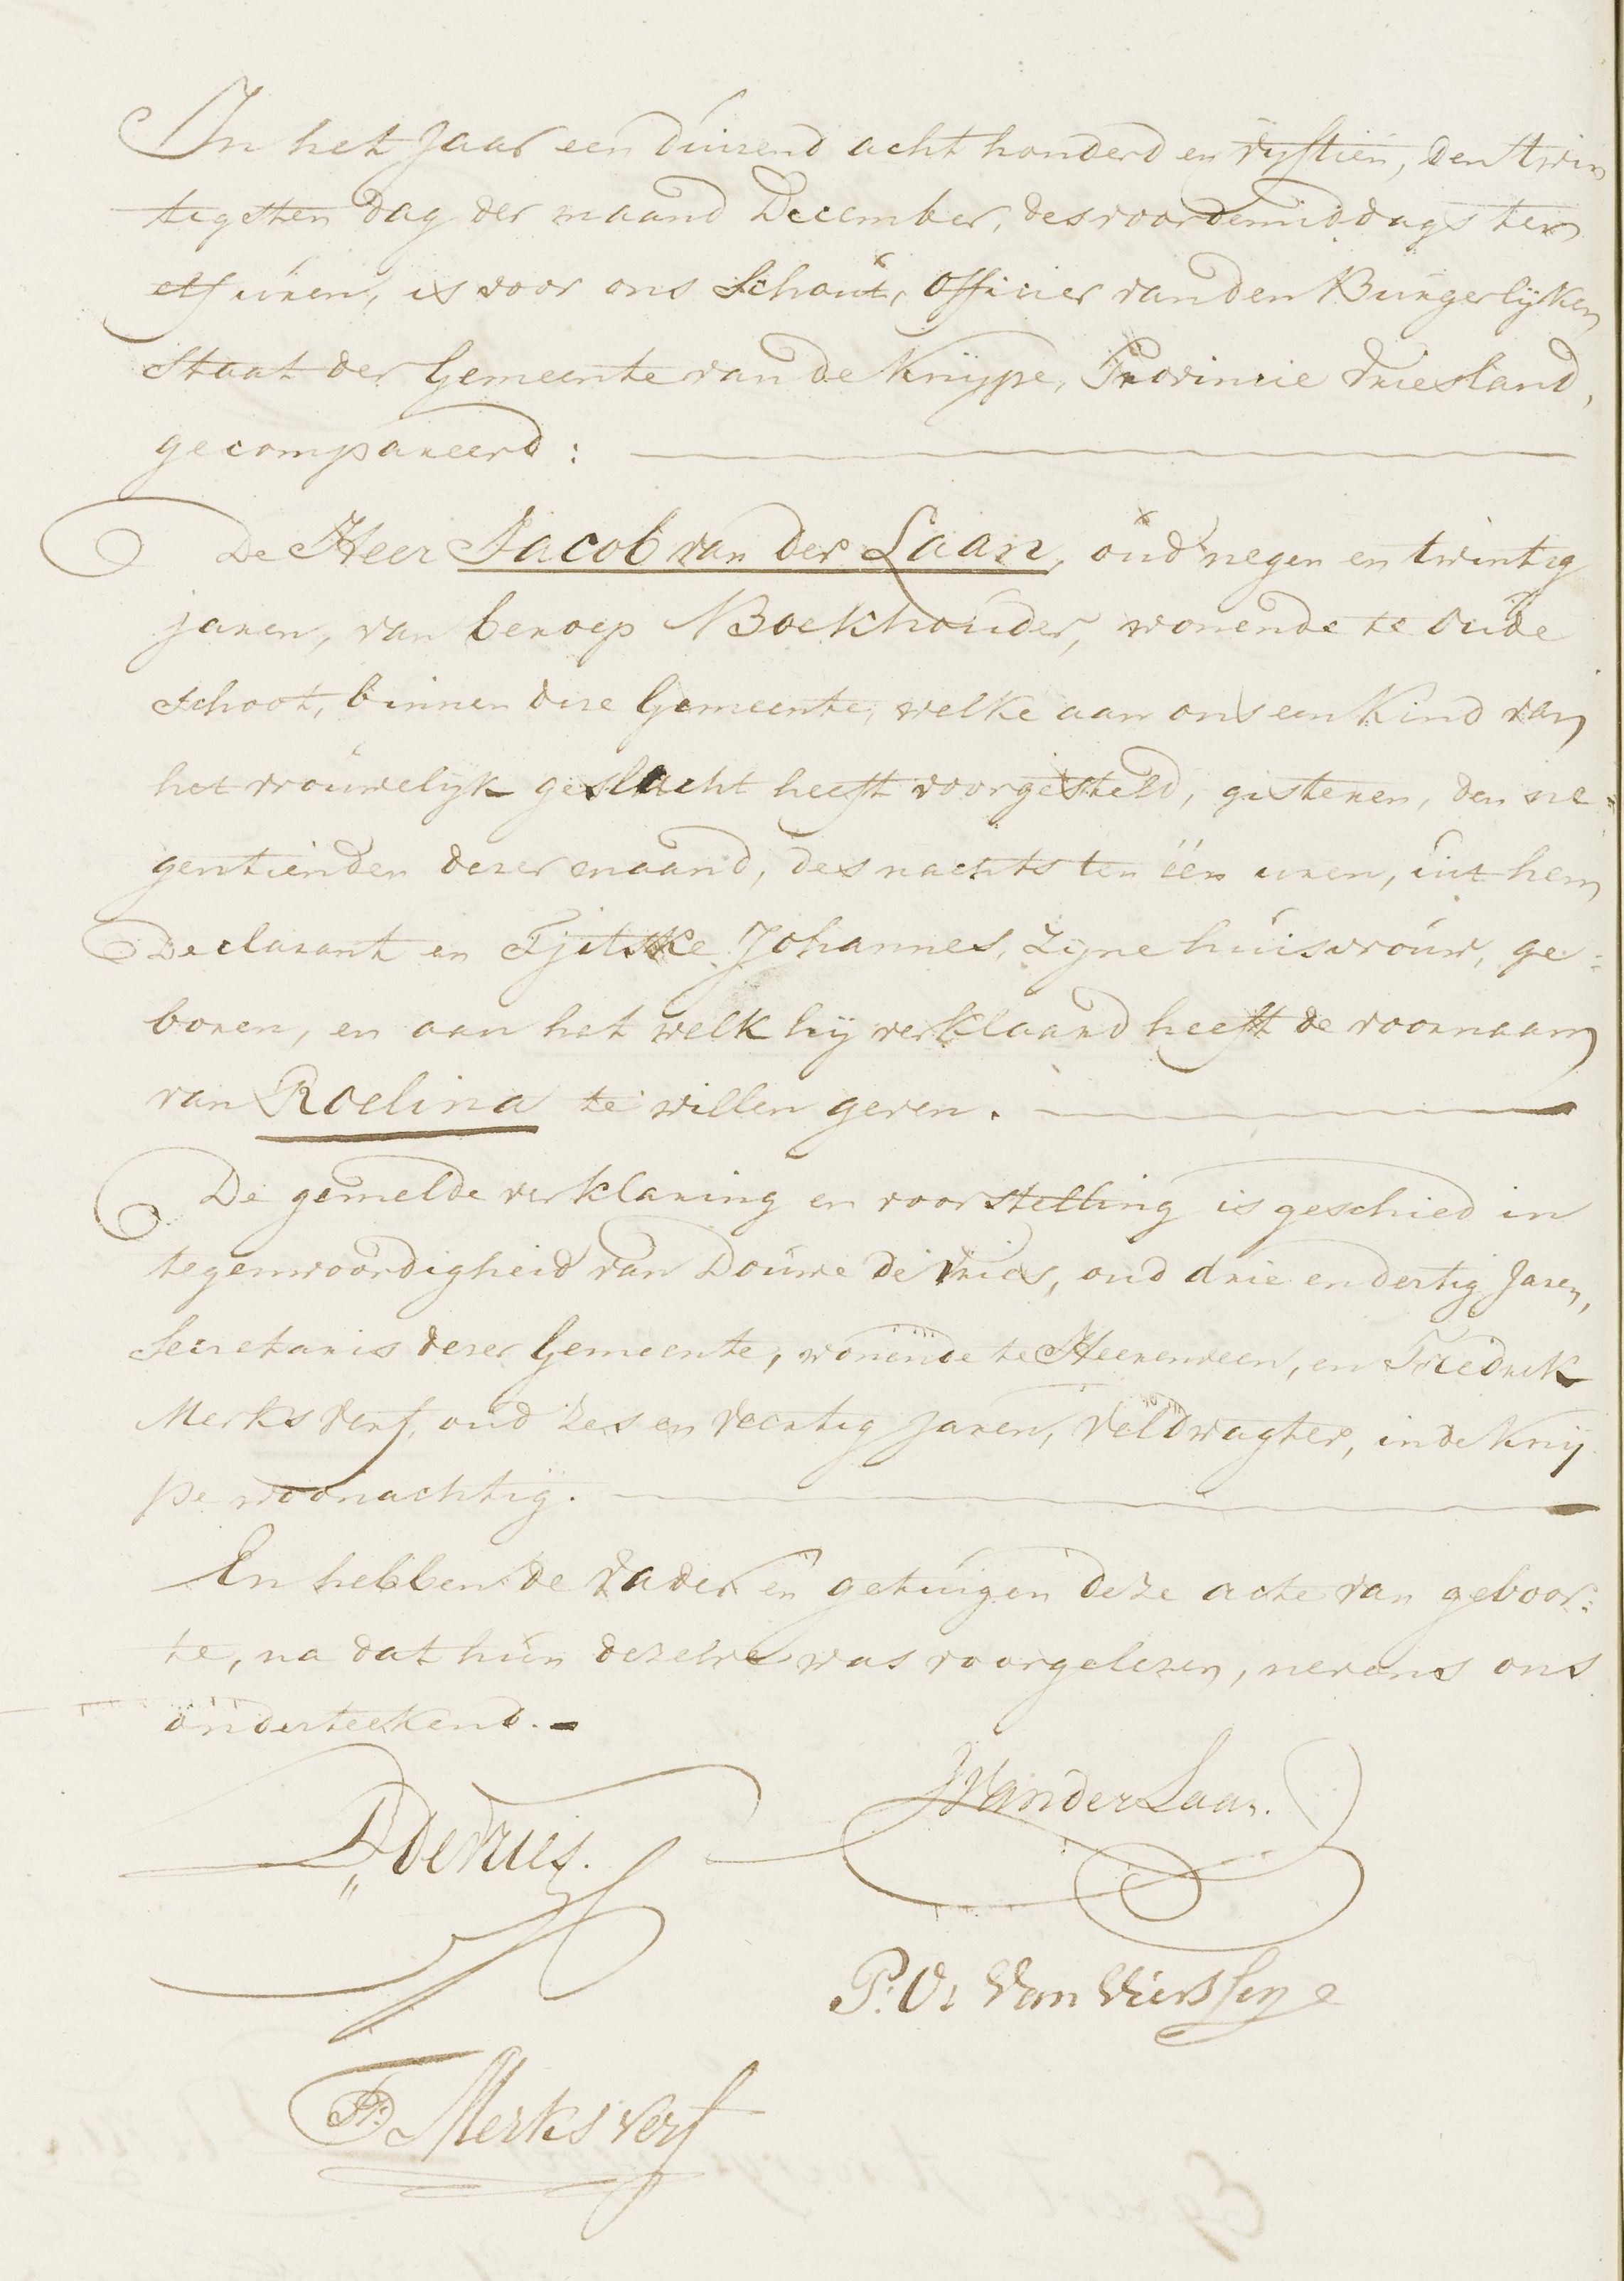 In het Jaar een duizend acht honderd en vijftien, den twin
tigsten dag der maand December, des voordemiddags ten
elf uren, is voor ons Schout, Officier van den Burgerlijken
Staat der Gemeente van de Knijpe, Provincie Vriesland,
gecompareerd:
De Heer Jacob van der Laan, oud negen en twintig
jaren, van beroep Boekhouder, wonende te Oude
schoot, binnen deze Gemeente, welke aan ons een Kind van
het vrouwelijk geslacht heeft voorgesteld, gisteren, den ne=
gentienden dezer maand, des nachts ten één uren, uit hem
Declarant en Tjitske Johannes, zijne huisvrouw, ge=
boren, en aan het welk hij verklaard heeft de voornaam
van Roelina te willen geven.
De gemelde verklaring en voorstelling is geschied in
tegenwoordigheid van Douwe de Vries, oud drie en dertig Jaren,
Secretaris dezer Gemeente, wonende te Heerenveen, en Friedrik
Merksverf, oud zes en veertig jaren, Veldwagter, in de Knij
pe woonachtig.
En hebben de vader en getuigen deze acte van geboor=
te, na dat hun dezelve was voorgelezen, nevens ons
onderteekend.
D de Vries.
J Van der Laan.
P: V: Van Vierssen
F: Merksverf